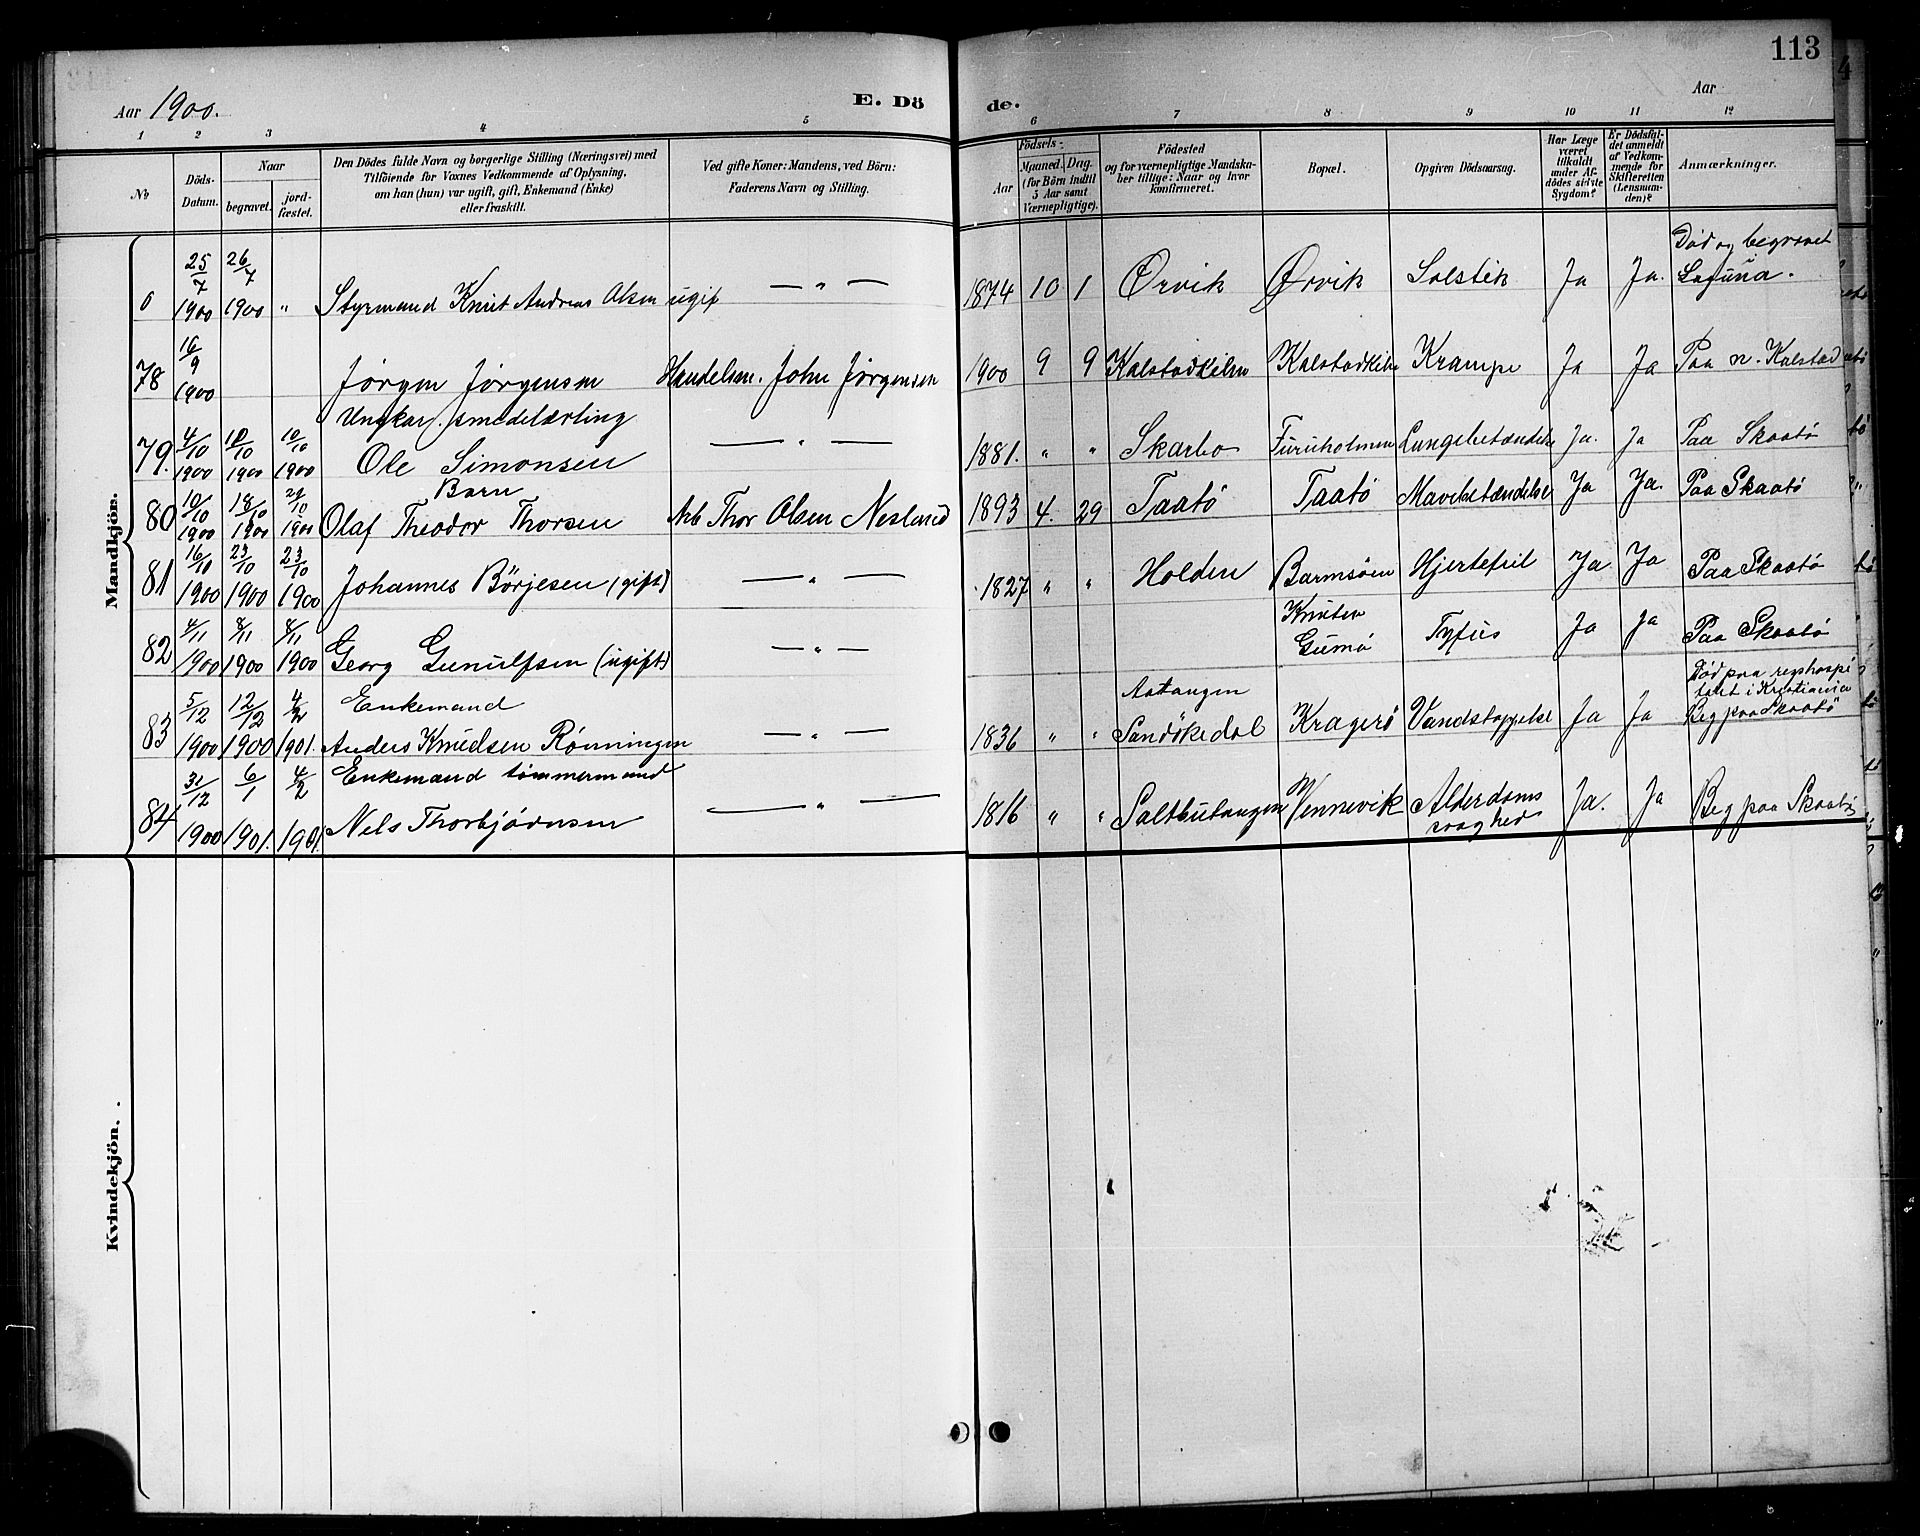 113
Aar 1900.
E. Dö
de.
Aar
1 2 3 4 5 6 7 8 9 10 11 12
No
Döds-Datum.
Naar
begravet.
jord-fæstet.
Den Dödes fulde Navn og borgerlige Stilling (Næringsvei) med
Tilföiende for Voxnes Vedkommende af Oplysning,
om han (hun) var ugift, gift, Enkemand (Enke)
eller fraskilt.
Ved gifte Koner: Mandens, ved Börn:
Faderens Navn og Stilling.
Födsels-
Aar
Maaned. Dag.
(for Börn indtil
5 Aar samt
Værnepligtige).
Födested
og for værnepligtige Mandska-
ber tillige: Naar og hvor
konfirmeret.
Bopæl.
Opgiven Dödsaarsag.
Har Læge
været
tilkaldt
under Af-
dödes sidste
Sygdom?
Er Dödsfal-
det anmeldt
af Vedkom-
mende for
Skifteretten
(Lensman-
den)?
Anmærkninger.
Mandkjön.
0 25/7 1900 26/7 1900 " Styrmand Knut Andreas Olsen ugift — " — 1874 10 1 Ørvik Ørvik Solstik Ja Ja. Död og begravet
Laguna.
78 16/9 1900 Jørgen Jørgensen Handelsm. John Jørgensen 1900 9 9 Kalstadkilen Kalstadkilen Krampe Ja Ja Paa n. Kalstad
Ungkar, smedelærling
79. 4/10 1900 10/10 1900 10/10 1900 Ole Simonsen — " — 1881. " " Skarbo Furuholmen Lungebetændelse Ja. Ja Paa Skaatö
Barn
80 10/10 1900 18/10 1900 1900 Olaf Theodor Thorsen Arb Thor Olsen Nesland 1893 4. 29 Taatö Taatö Mavebetændelse Ja Ja. Paa Skaatö
81 16/10 1900 23/10 1900 23/10 1900 Johannes Börjesen (gift) — " — 1827 " " Holden Barmsöen Hjertefeil Ja Ja Paa Skaatö
82 4/11 1900 8/11 1900 8/11 1900 Georg Gunulfsen (ugift) — " — Gumö Tyfus Ja Ja Paa Skaatö
Enkemand
83 5/12 1900 12/12 1900 4/2 1901. Anders Knudsen Rønningen — " — 1836 " " Aatangen
Sandökedal Kragerö Vandstoppelse Ja Ja Död paa rigshospi
talet i Kristiania
Beg paa Skaatö
Enkemand tömmermand
84 31/12 1900 6/1 1901. 4/2 1901. Nels Thorbjörnsen — " — 1816 " " Saltbutangen Vennevik Alderdoms
svaghed Ja. Ja Beg paa Skaatö
Kvindekjön.